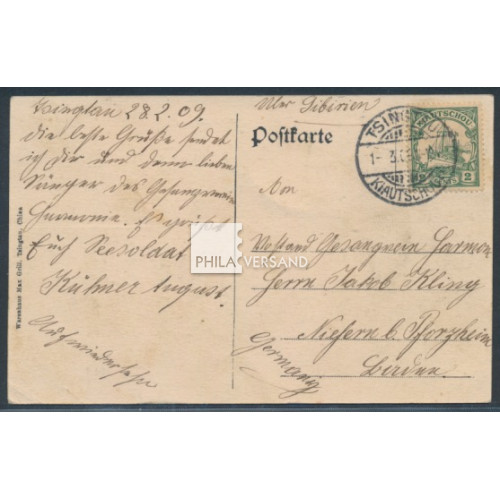 Tsingtau 28.2.09.
Die beste Grüße sendet
ich Dir und deine lieben
Sänger des Gesangverein
Harmonie. Es grüßt
Euch Seesoldat
Kühner August.
Auf wiedersehn
Warenhaus Max Grill, Tsingtau, China
Über Sibirien
Postkarte
An
Vorstand Gesangverein Harmon
Herrn Jakob Kling
Niefern b. Pforzheim
Baden
Germany
TSINGTAU
1-3
KIAUTSCHOU
KIAUTSCHOU
2
PHILA VERSAND